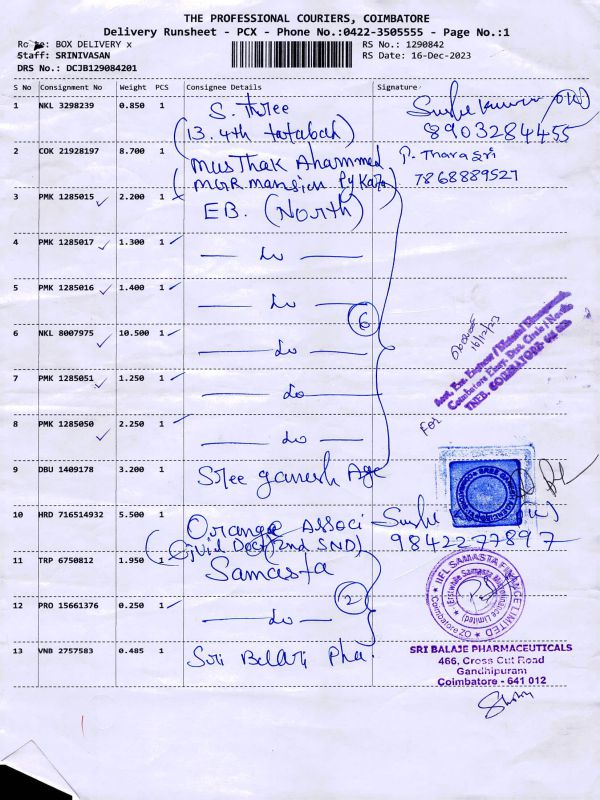 THE PROFESSIONAL COURIERS, COIMBATORE
Delivery Runsheet - PCX - Phone No.:0422-3505555 - Page No.:1
Route: BOX DELIVERY x RS No.: 1290842
Staff: SRINIVASAN RS Date: 16-Dec-2023
DRS No.: DCJB129084201
S No Consignment No Weight PCS Consignee Details Signature
1 NKL 3298239 0.850 1 S. Three
(13. 4th tatabad) 8903284455
2 COK 21928197 8.700 1 Musthak Ahammed P. Tharasri
(MGR mansion 7868889527
3 PMK 1285015 2.200 1 EB. (North)
4 PMK 1285017 1.300 1 — do —
5 PMK 1285016 1.400 1 — do —
6
6 NKL 8007975 10.500 1 — do —
16/12/23
7 PMK 1285051 1.250 1 — do —
For
Coimbatore Elecy. Dist. Circle / North
TNEB. COIMBATORE
8 PMK 1285050 2.250 1 — do —
9 DBU 1409178 3.200 1 Sree ganesh Age
10 HRD 716514932 5.500 1 Orange Associ
(Civil Dect (2nd SND) 9842277897
11 TRP 6750812 1.950 1 Samasta
IIFL SAMASTA FINANCE LIMITED
(Erstwhile Samasta Microfinance Limited)
Coimbatore ZO
2
12 PRO 15661376 0.250 1 — do —
13 VNB 2757583 0.485 1 Sri Balaji Pha.
SRI BALAJE PHARMACEUTICALS
466, Cross Cut Road
Gandhipuram
Coimbatore - 641 012